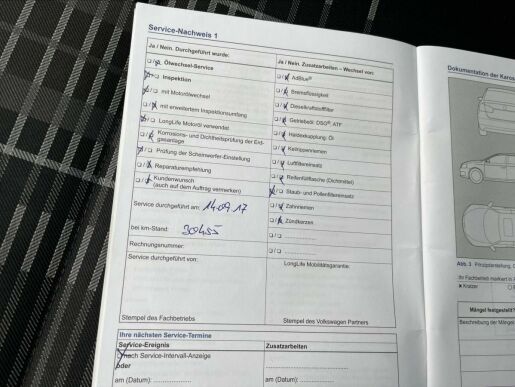 Service-Nachweis 1
Ja / Nein. Durchgeführt wurde:
Ölwechsel-Service
Inspektion
mit Motorölwechsel
mit erweitertem Inspektionsumfang
LongLife Motoröl verwendet
Korrosions- und Dichtheitsprüfung der Erd-
gasanlage
Prüfung der Scheinwerfer-Einstellung
Reparaturempfehlung
Kundenwunsch
(auch auf dem Auftrag vermerken)
Service durchgeführt am: 14.09.17
bei km-Stand: 30455
Rechnungsnummer:
Service durchgeführt von:
Stempel des Fachbetriebs
Ja / Nein. Zusatzarbeiten – Wechsel von:
AdBlue®
Bremsflüssigkeit
Dieselkraftstofffilter
Getriebeöl: DSG®, ATF
Haldexkupplung: Öl
Keilrippenriemen
Luftfiltereinsatz
Reifenfüllflasche (Dichtmittel)
Staub- und Pollenfiltereinsatz
Zahnriemen
Zündkerzen
LongLife Mobilitätsgarantie:
Stempel des Volkswagen Partners
Ihre nächsten Service-Termine
Service-Ereignis
nach Service-Intervall-Anzeige
oder
am (Datum):
Zusatzarbeiten
am (Datum):
Dokumentation der Karos
Abb. 3 Prinzipdarstellung.
Ihr Fahrbetrieb markiert in
Kratzer
Mängel festgestellt?
Beschreibung der Mängel